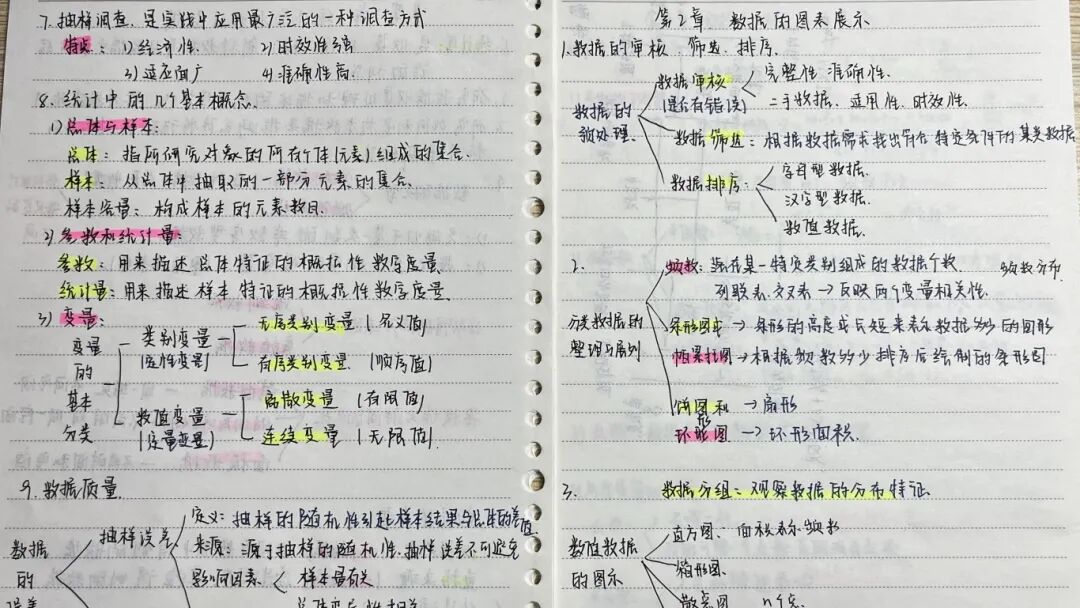 7. 抽样调查, 是实践中应用最广泛的一种调查方式
特点: 1) 经济性. 2) 时效性强
3) 适应面广 4) 准确性高.
8. 统计中的几个基本概念.
1) 总体与样本:
总体: 指所研究对象的所有个体(元素)组成的集合.
样本: 从总体中抽取的一部分元素的集合.
样本容量: 构成样本的元素数目.
2) 参数和统计量:
参数: 用来描述总体特征的概括性数字度量.
统计量: 用来描述样本特征的概括性数字度量.
3) 变量:
变量的基本分类
类别变量 (定性变量)
无序类别变量 (名义值)
有序类别变量 (顺序值)
数值变量 (定量变量)
离散变量 (有限值)
连续变量 (无限值)
9. 数据质量.
数据的误差
抽样误差
定义: 抽样的随机性引起样本结果与总体的差值.
来源: 源于抽样的随机性, 抽样误差不可避免
影响因素: 样本量有关
总体变异性相关
第2章 数据的图表展示
1. 数据的审核 筛选. 排序.
数据的预处理.
数据审核 (是否有错误)
完整性 准确性.
二手数据. 适用性. 时效性.
数据筛选: 根据数据需求找出符合特定条件的某类数据
数据排序:
字母型数据.
汉字型数据.
数值数据.
2.
分类数据的整理与展别
频数: 落在某一特定类别组成的数据个数. 频数分布
列联表. 交叉表 → 反映两个变量相关性.
条形图或 → 条形的高度或长短来表示数据多少的图形
帕累托图 → 根据频数多少排序后绘制的条形图
饼图和 → 扇形
环形图 → 环形面积.
3. 数据分组: 观察数据的分布特征.
数值数据的图示
直方图. 面积表示频数
箱形图.
散点图